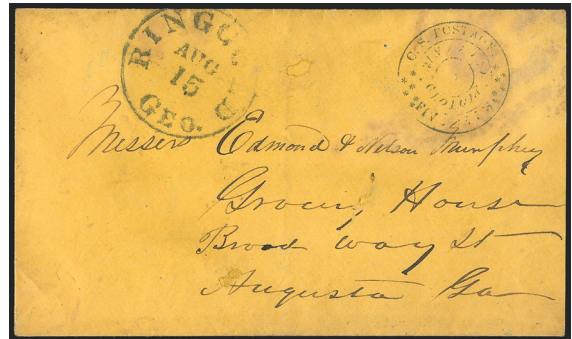 RINGGOLD
AUG
15
GEO.
C.S. POSTAGE
Georgia
FIVE CTS
Messers Edmond & Nelson Murphey
Grocery House
Broad way St
Augusta Ga